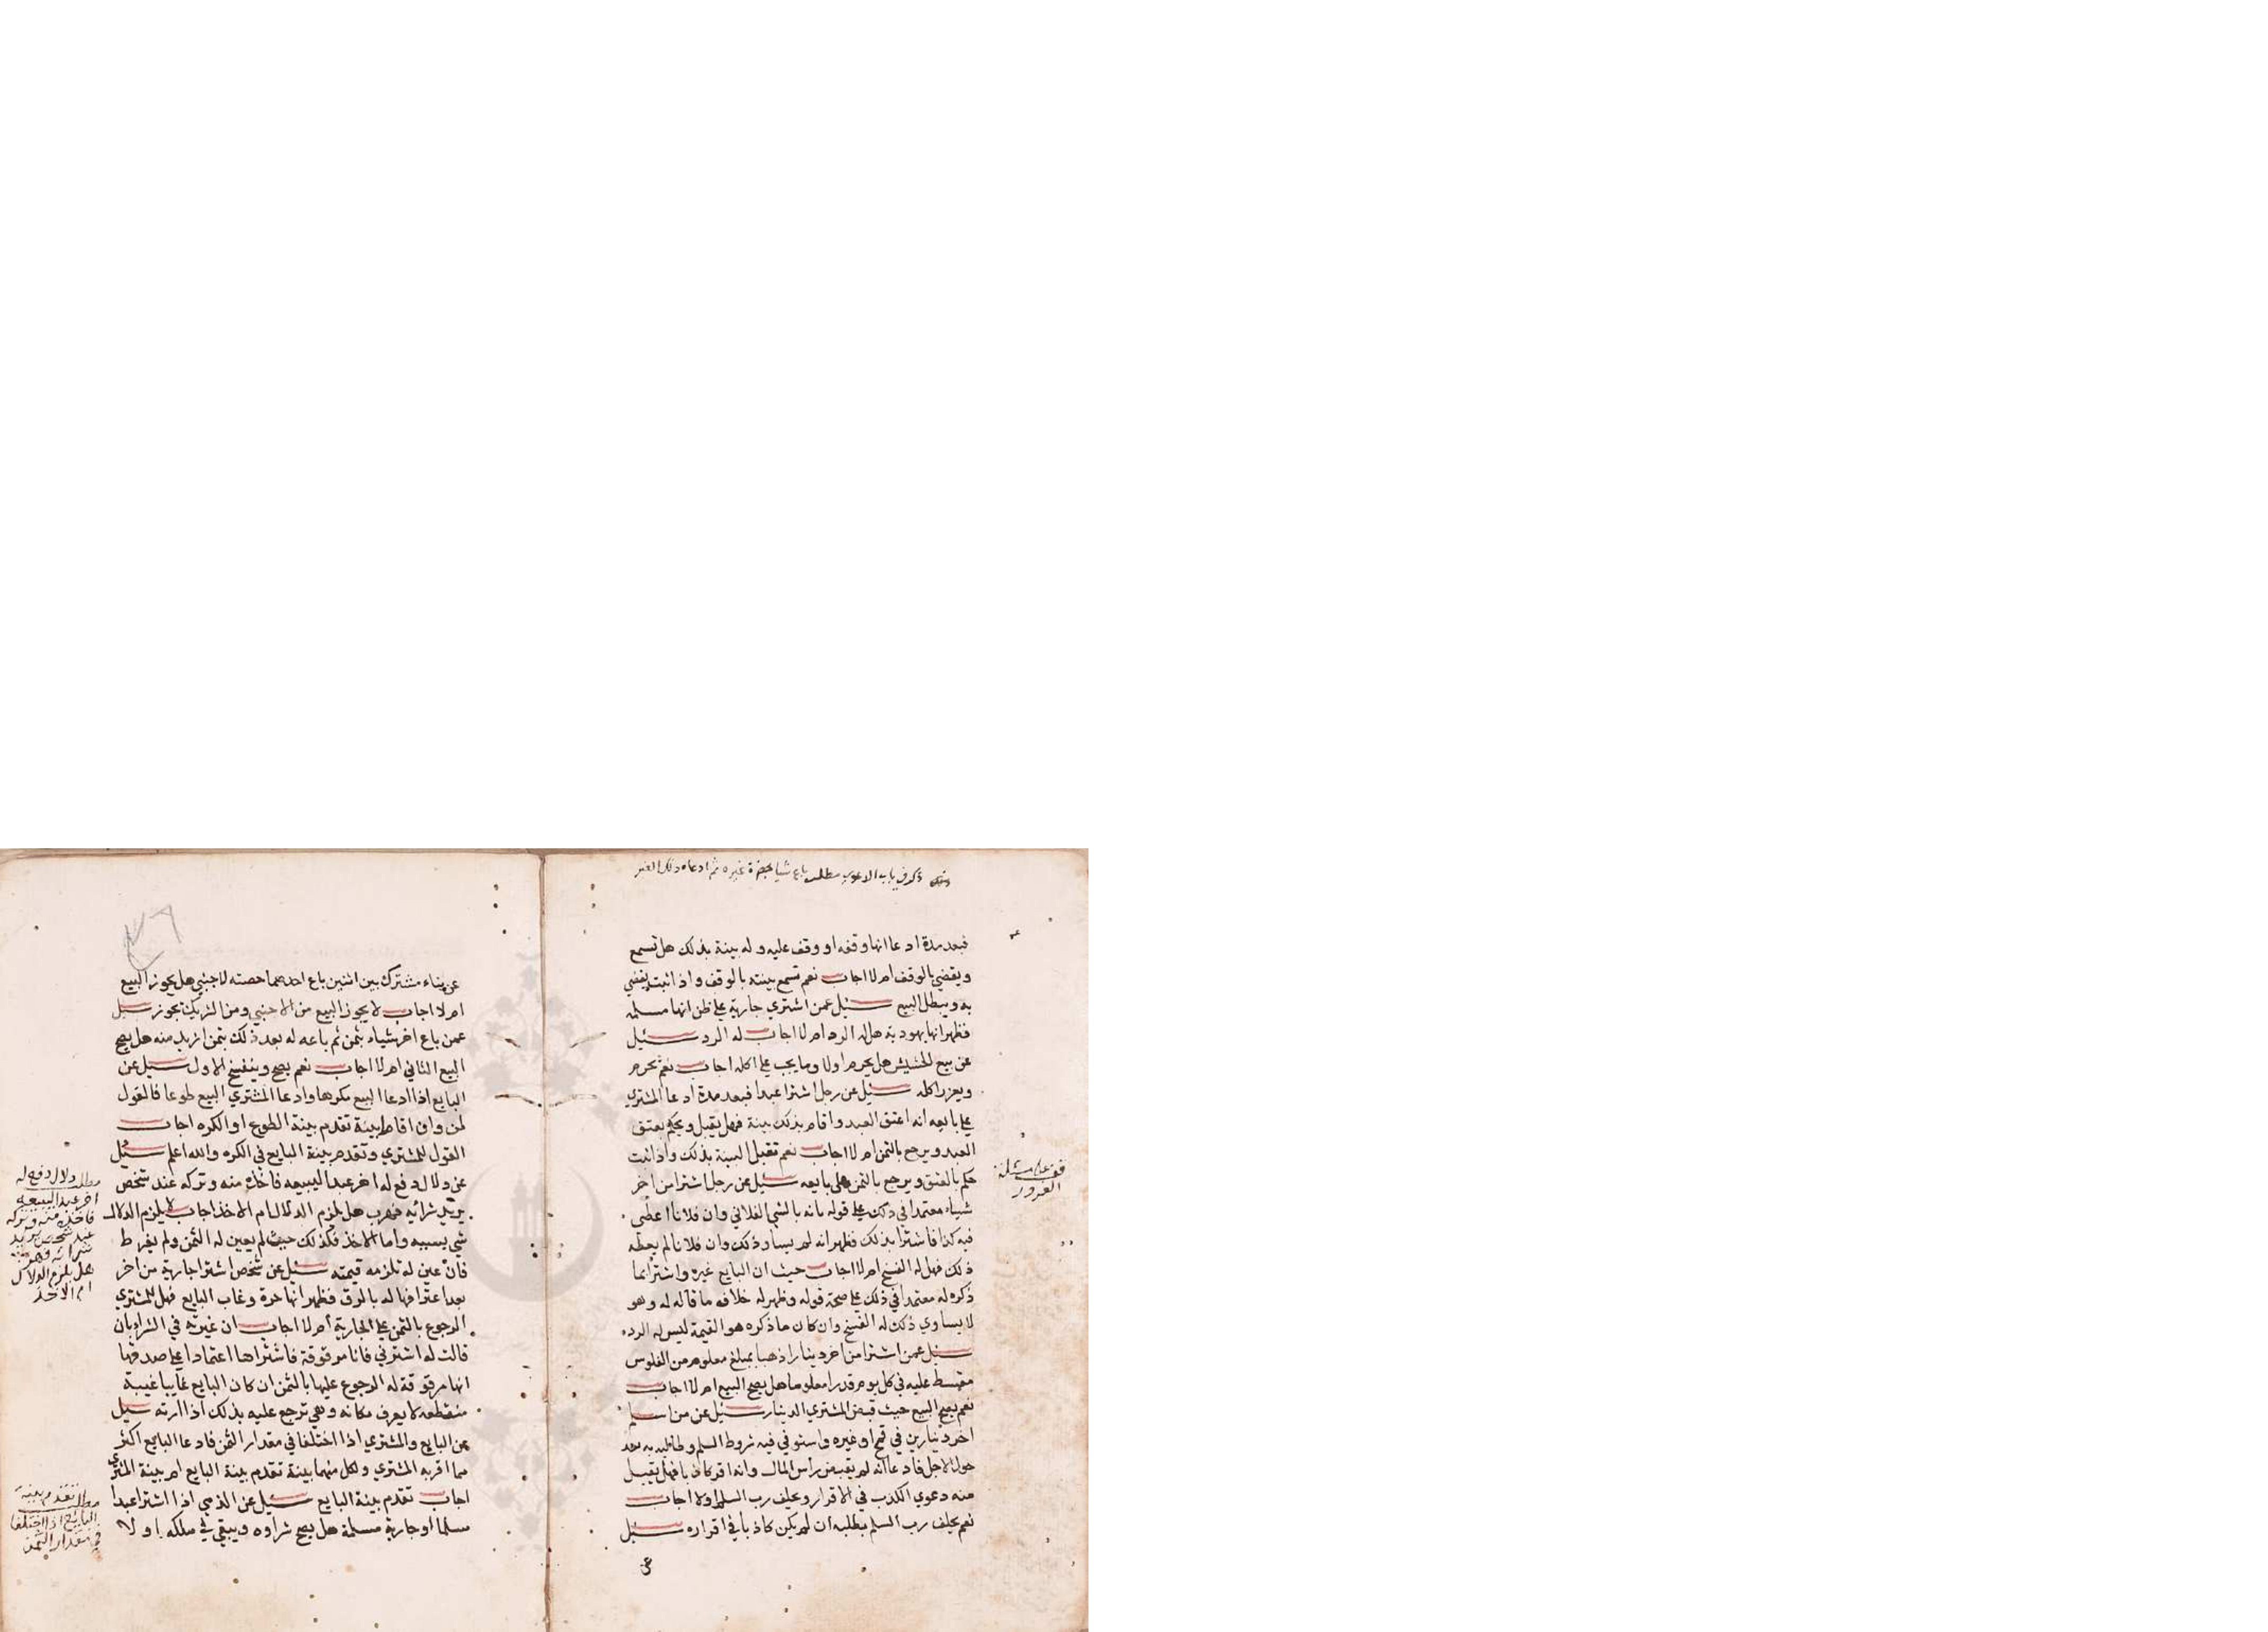 ذكر في باب الدعوي مطلب باع شيا بحضرة غيره ثم ادعاه ذلك الغير
فبعد مدة ادعا انها وقفه او وقف عليه وله بينة بذلك هل تسمع
ويقضي بالوقف ام لا اجاب نعم تسمع بينته بالوقف واذا ثبت يقضي
به ويبطل البيع سئيل عمن اشتري جارية علي ظن انها مسلمه
فظهر انها يهودية هل له الرد ام لا اجاب له الرد سئيل
عن بيع الحشيش هل يحرم اولا وما يجب علي اكله اجاب نعم يحرم
ويعزر اكله سئيل عن رجل اشترا عبدا فبعد مدة ادعا المشتري
علي بايعه انه اعتق العبد واقام بذلك بينة فهل يقبل ويحكم بعتق
العبد ويرجع بالثمن ام لا اجاب نعم تقبل البينة بذلك واذا ثبت
حكم بالعتق ويرجع بالثمن علي بايعه سئيل عن رجل اشترا من اخر
شياء معتمدا في ذلك علي قوله بانه بالشي الفلاني وان فلانا اعطي
فيه كذا فاشترا بذلك فظهر انه لم يساو ذلك وان فلانا لم يعطه
ذلك فهل له الفسخ ام لا اجاب حيث ان البايع غيره واشترا بما
ذكره له معتمدا في ذلك علي صحة قوله وظهر له خلافه ما قاله له وهو
لا يساوي ذلك له الفسخ وان كان ما ذكره هو القيمة ليس له الرد
سئيل عمن اشترا من اخر دينارا ذهبا بمبلغ معلوم من الفلوس
مقسط عليه في كل يوم قدرا معلوما هل يصح البيع ام لا اجاب
نعم يصح البيع حيث قبض المشتري الدينار سئيل عن من اسلم
اخر دينارين في قمح او غيره واستوفي فيه شروط السلم وطالبه به بعد
حول الاجل فادعا انه لم يقبض راس المال وانه اقر كاذبا فهل يقبل
منه دعوي الكذب في الاقرار ويحلف رب السلم اولا اجاب
نعم يحلف رب السلم بطلبه ان لم يكن كاذبا في اقراره سئيل
عن
قف علي مسئلة
الغرور
٧٦
عن بناء مشترك بين اثنين باع احدهما حصته لاجنبي هل يجوز البيع
ام لا اجاب لا يجوز البيع من الاجنبي ومن الشريك يجوز سئيل
عمن باع اخر شياء بثمن ثم باعه له بعد ذلك بثمن ازيد منه هل يصح
البيع الثاني ام لا اجاب نعم يصح وينفسخ الاول سئيل عن
البايع اذا ادعا البيع مكرها وادعا المشتري البيع طوعا فالقول
لمن وان اقاما بينة تقدم بينة الطوع او الكره اجاب
القول للمشتري وتقدم بينة البايع في الكره والله اعلم سئيل
عن دلال دفع له اخر عبدا ليبيعه فاخذه منه وتركه عند شخص
يريد شرائيه فهرب هل يلزم الدلال ام الاخذ اجاب لا يلزم الدلال
شي بسببه واما الاخذ فكذلك حيث لم يعين له الثمن ولم يفرط
فان عين له تلزمه قيمته سئيل عن شخص اشترا جارية من اخر
بعد اعترافها له بالرق فظهر انها حرة وغاب البايع فهل للمشتري
الرجوع بالثمن علي الجارية ام لا اجاب ان غيرته في الشراء بان
قالت له اشترني فانا مرقوقة فاشتراها اعتمادا علي صدقها
انها مرقوقة له الرجوع عليها بالثمن ان كان البايع غايبا غيبة
منقطعه لا يعرف مكانه وهي ترجع عليه بذلك اذا ارته سئيل
عن البايع والمشتري اذا اختلفا في مقدار الثمن فادعا البايع اكثر
مما اقر به المشتري ولكل منهما بينة تقدم بينة البايع ام بينة المشتري
اجاب تقدم بينة البايع سئيل عن الذمي اذا اشترا عبدا
مسلما او جارية مسلمة هل يصح شراوه ويبقي في ملكه او لا
مطلب دلال دفع له
اخر عبدا ليبيعه
فاخذه منه وتركه
عند شخص يريد
شرائه فهرب منه
هل يلزم الدلال
ام الاخذ
مطلب تقدم بينة
البايع اذا اختلفا
في مقدار الثمن